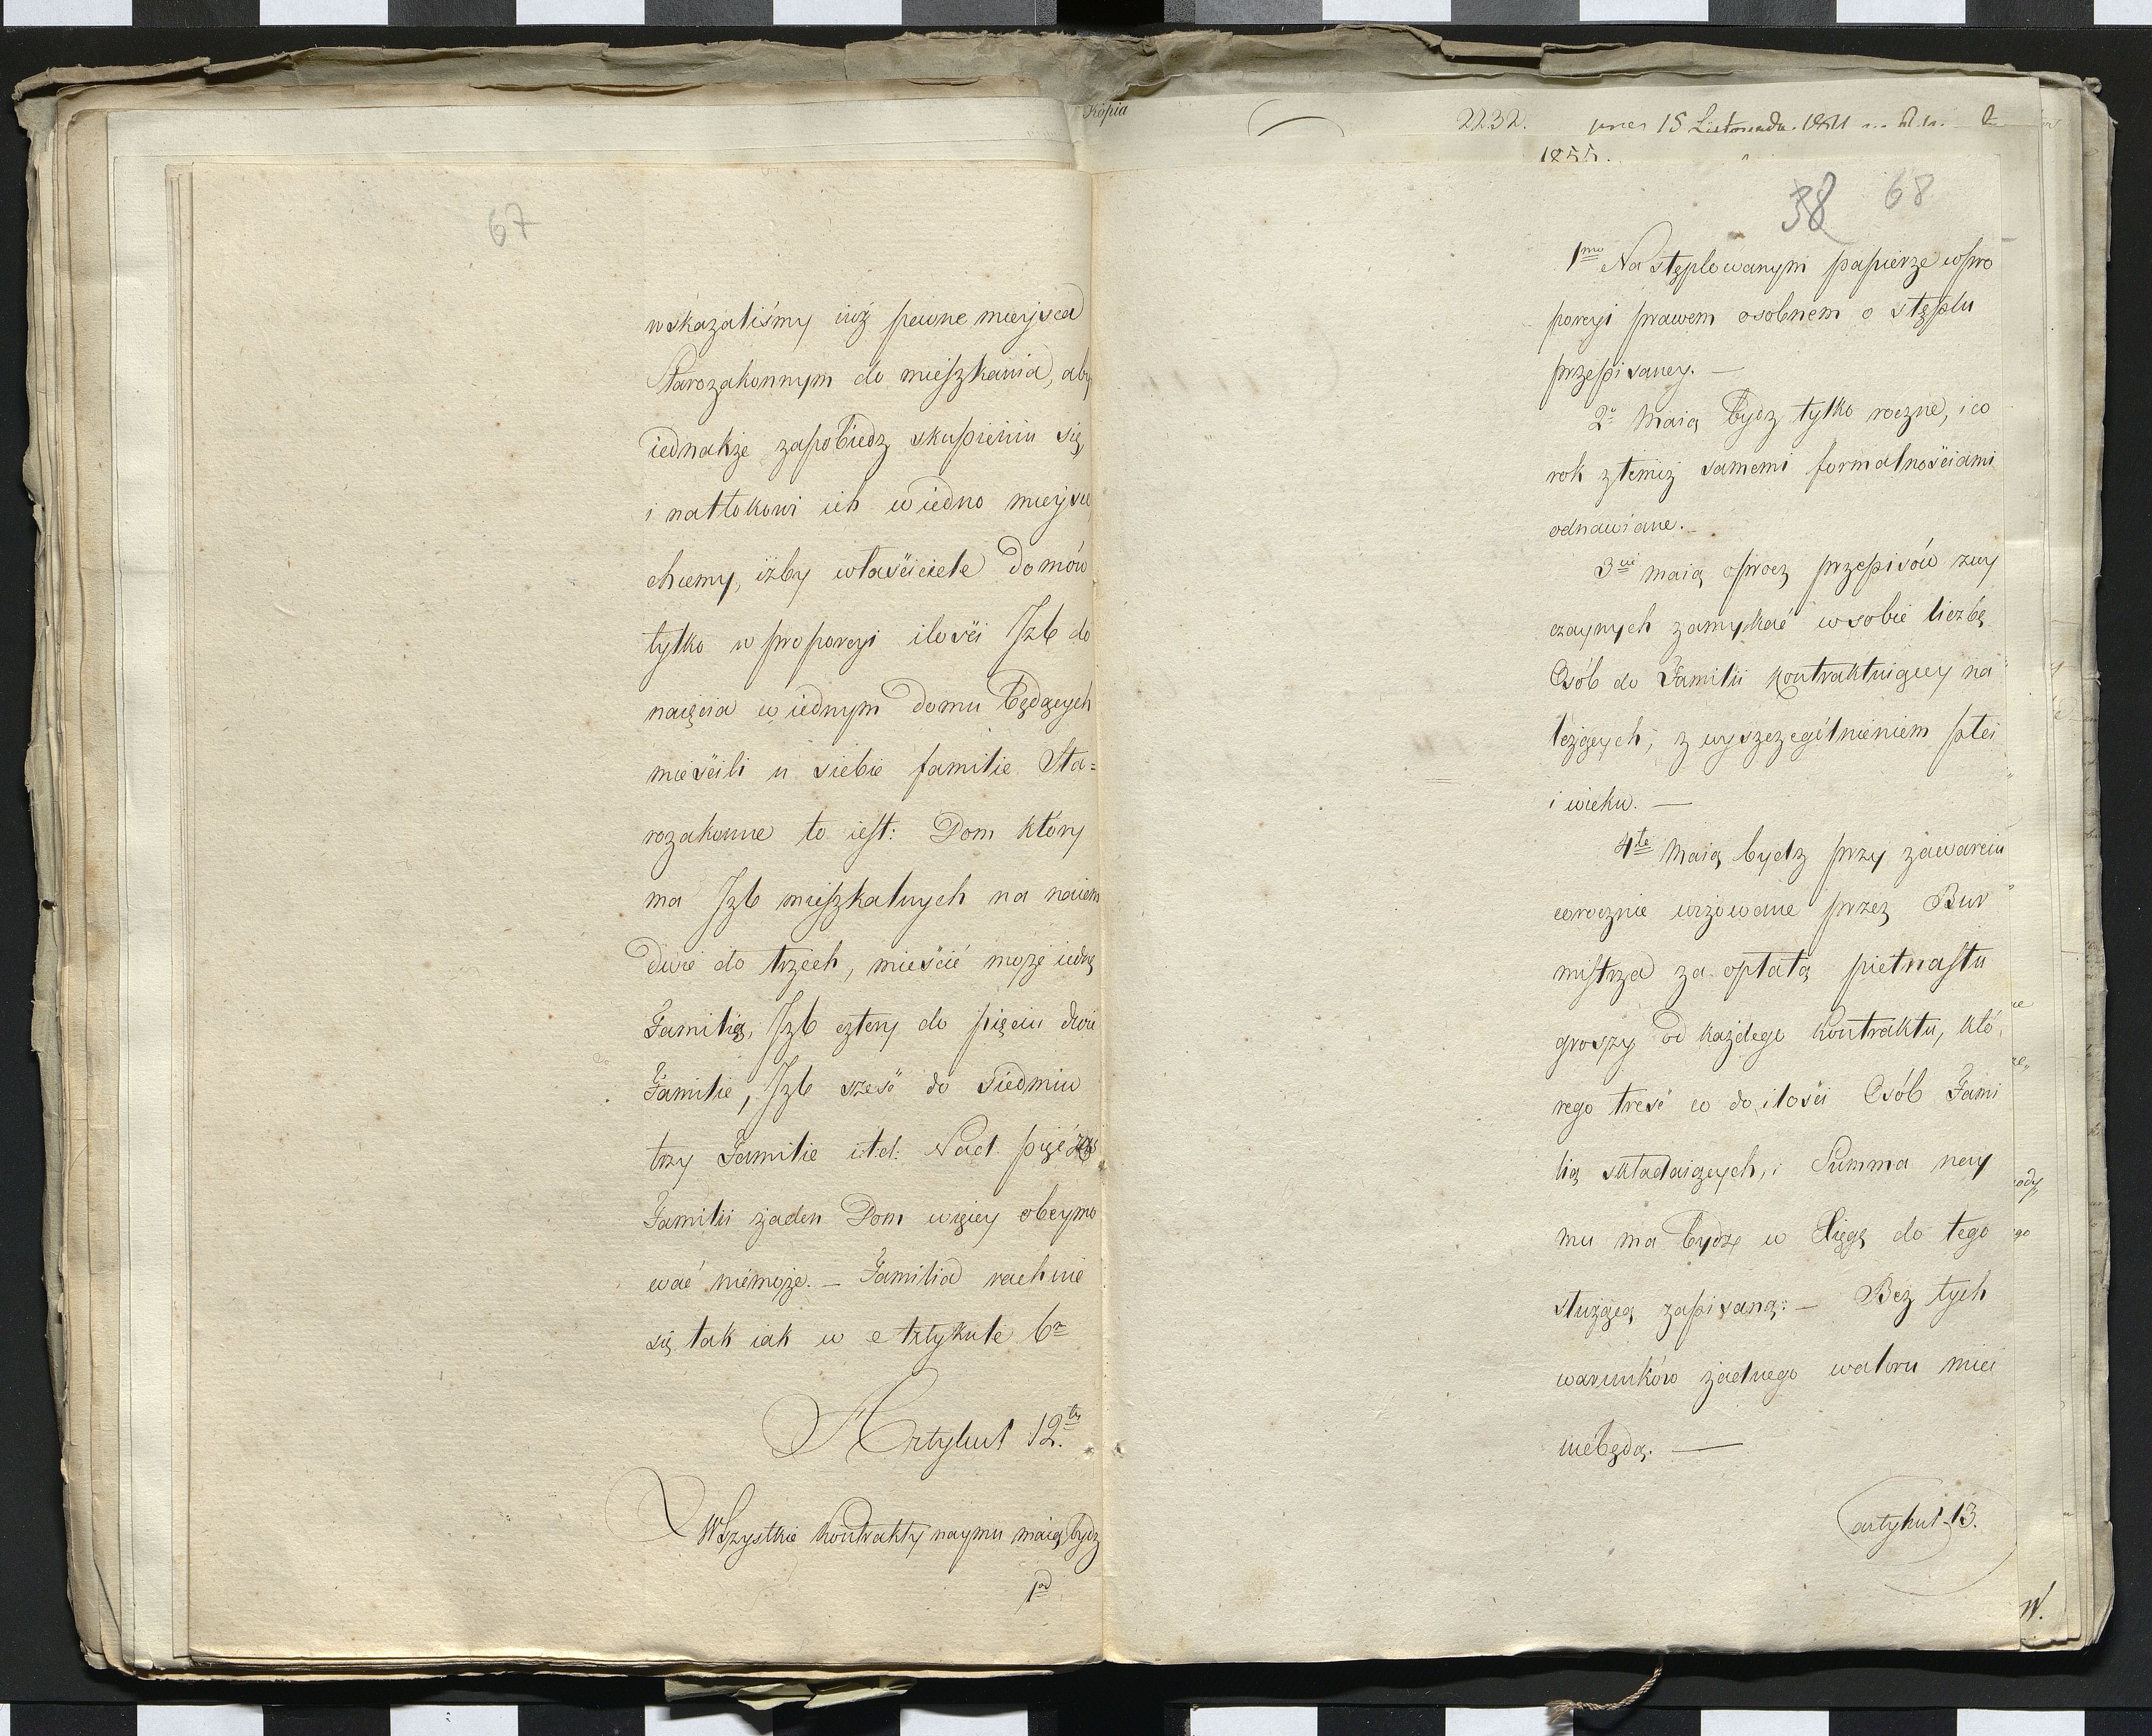 67
wskazaliśmy iuż pewne mieysca
Starozakonnym do mieszkania, aby
iednakże zapobiedz skupieniu się
i natłokowi ich w iedno mieysce
chcemy, iżby właściciele domów
tylko w proporcyi ilości Izb do
naięcia w iednym domu będących
mieścili u siebie familie Sta=
rozakonne to iest: Dom który
ma Izb mieszkalnych na naiem
dwie do trzech, mieścić może iedną
Familią, Izb cztery do pięciu dwie
Familie, Izb sześć do Siedmiu
trzy Familie i.t.d: Nad pięć
Familii żaden Dom więcey obeymo
wać niemoże. – Familia rachuie
się tak iak w Artykule 6m
Artykuł 12ty
Wszystkie kontrakty naymu maią bydz
1mo
Kopia
2232. 15 Listopada
1855.
38 68
1mo Na stęplowanym papierze w pro
porcyi prawem osobnem o stęplu
przepisaney. –
2o Maią bydz tylko roczne, i co
rok z temiż samemi formalnościami
odnawiane. –
3cie maią oprocz przepisów zwy
czaynych zamykać w sobie liczbę
Osób do Familii kontraktuiącey na
leżących, z wyszczególnieniem płci
i wieku. –
4te Maią bydz przy zawarciu
corocznie wizowane przez Bur
mistrza za opłatą pietnastu
groszy od każdego kontraktu, któ
rego treść co do ilości Osób Fami
lią składaiących, i Summa nay
mu ma bydz w Xięgę do tego
służącą zapisaną: – Bez tych
warunków żadnego waloru mieć
niebędą. –
artykuł 13.